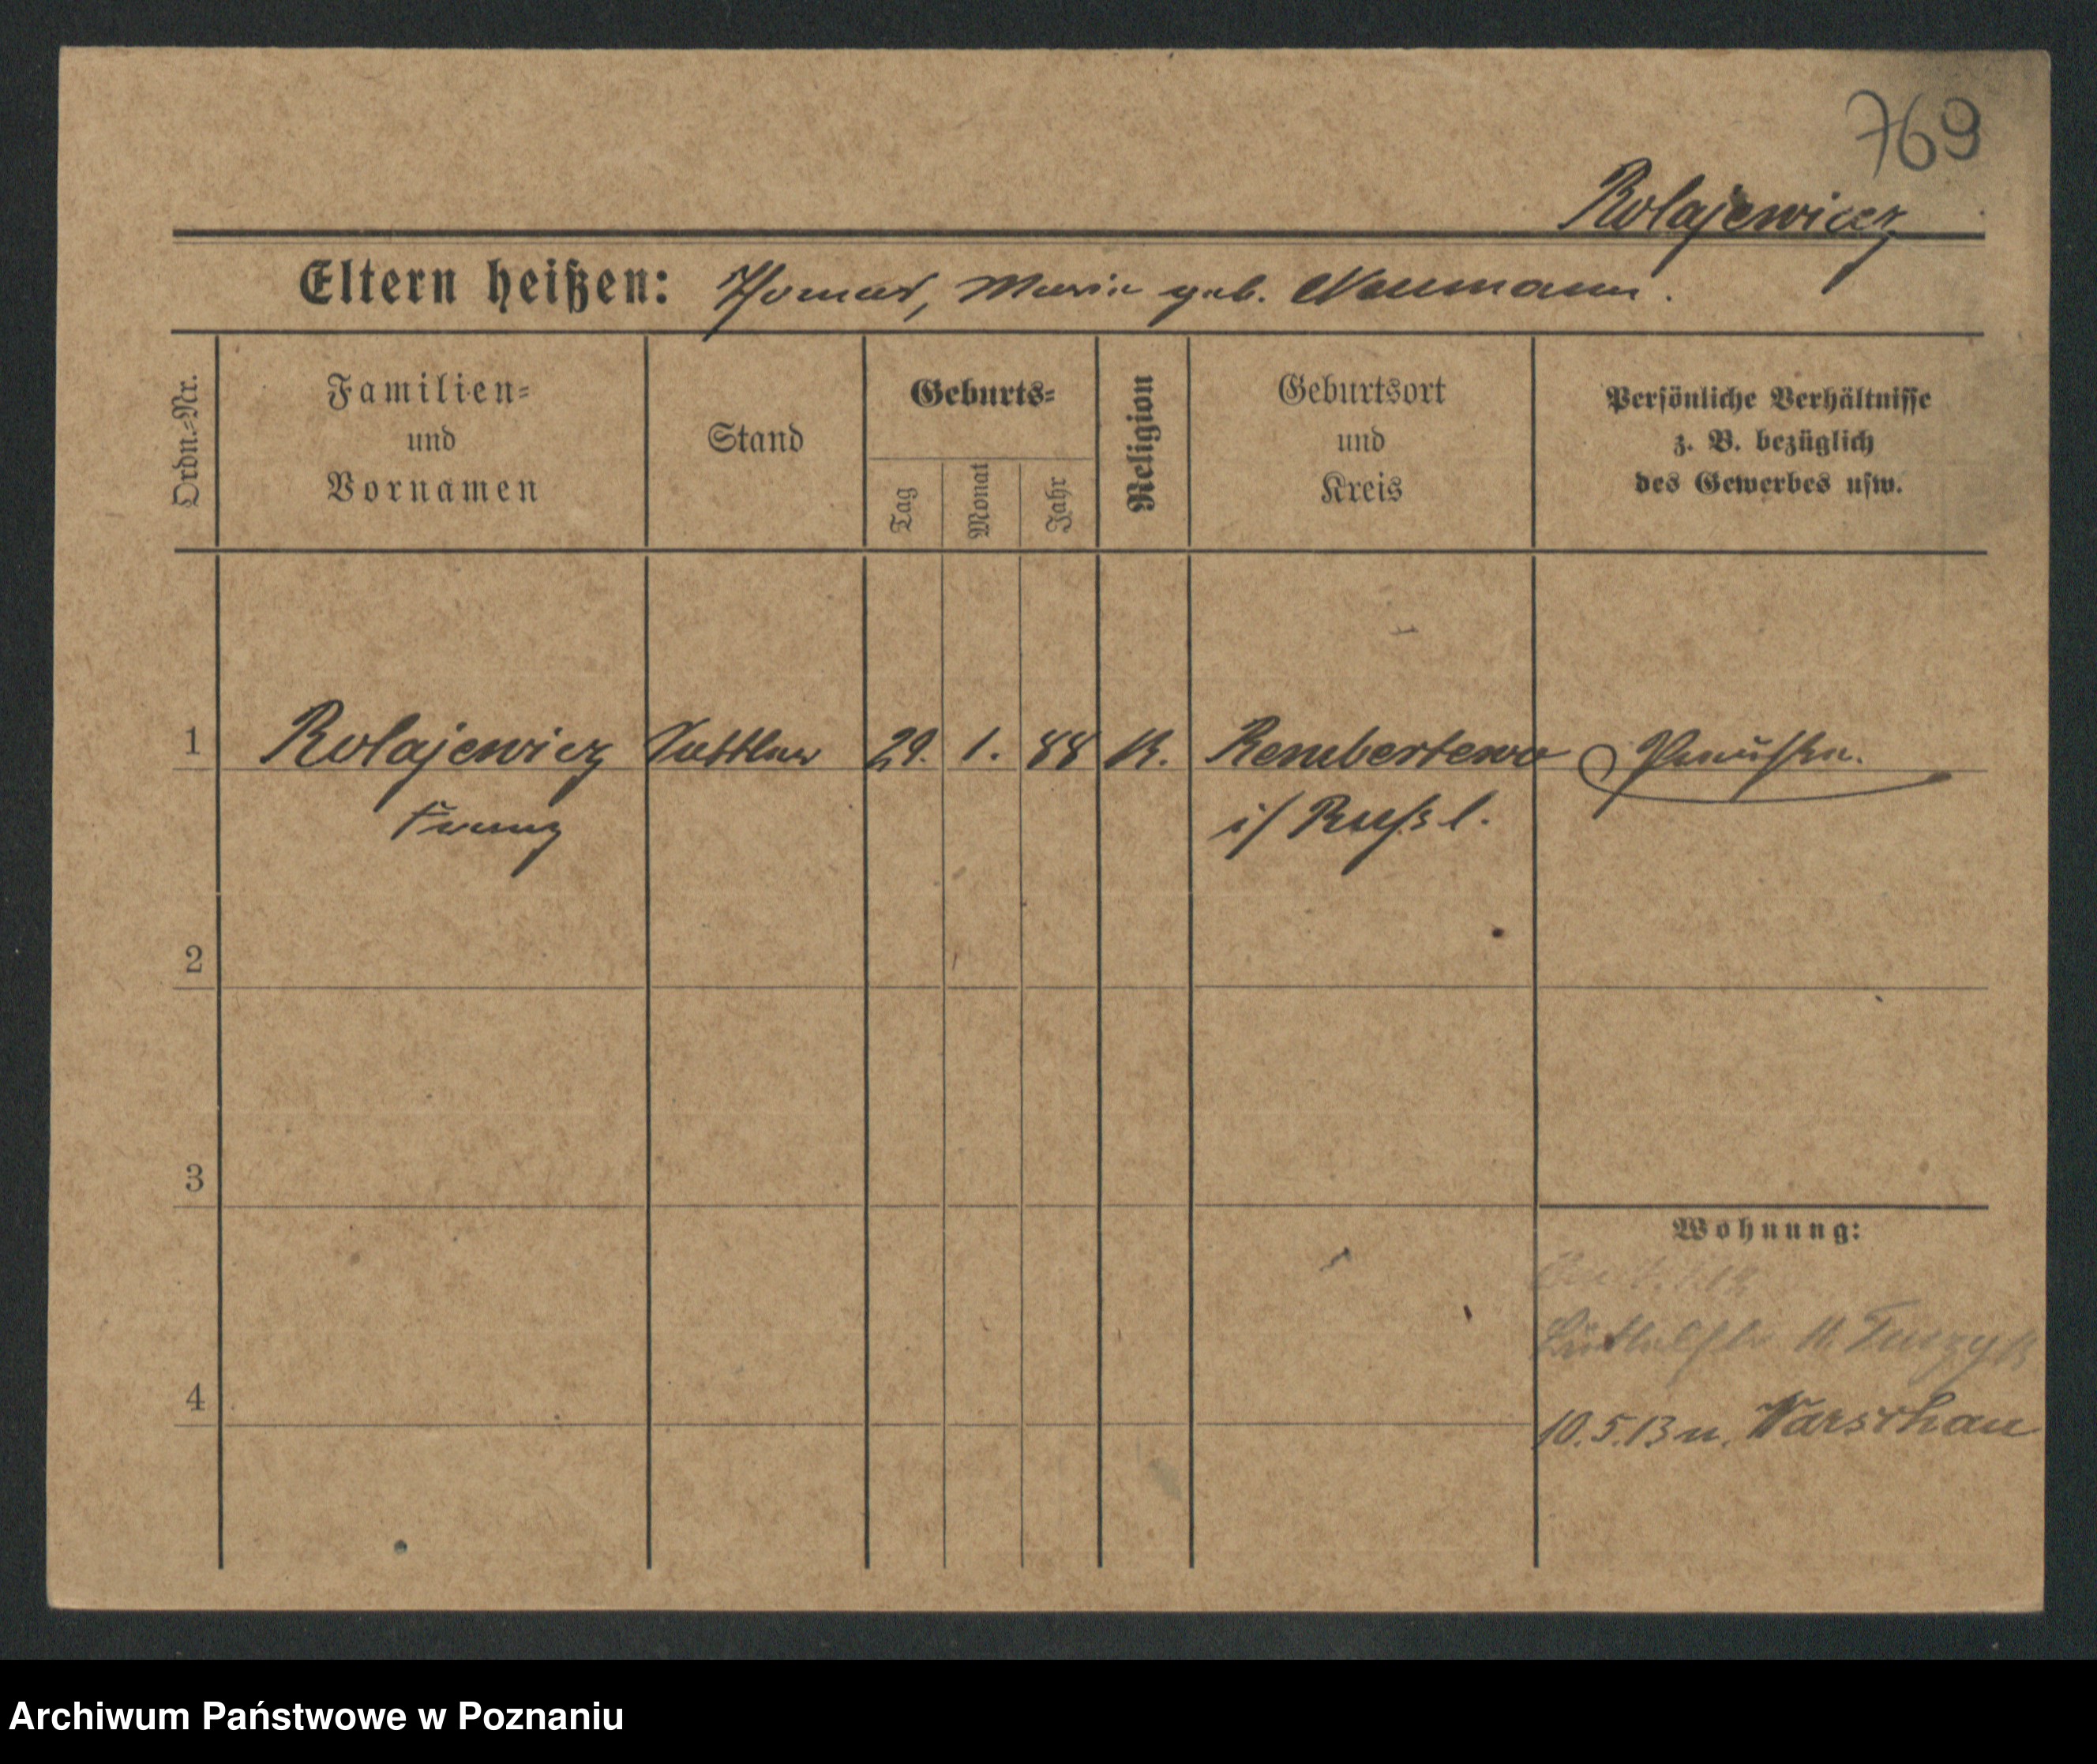 769
Rolajewicz
Eltern heißen: Thomas, Maria geb. Neumann.
Ordn.-Nr.
Familien-
und
Vornamen
Stand
Geburts-
Tag
Monat
Jahr
Religion
Geburtsort
und
Kreis
Persönliche Verhältnisse
z. B. bezüglich
des Gewerbes usw.
1 Rolajewicz Sattler 29. 1. 88 K. Rembertewo
Franz i/ Rußl.
2
3
Wohnung:
4
10.5.13 n. Warschau
Archiwum Państwowe w Poznaniu